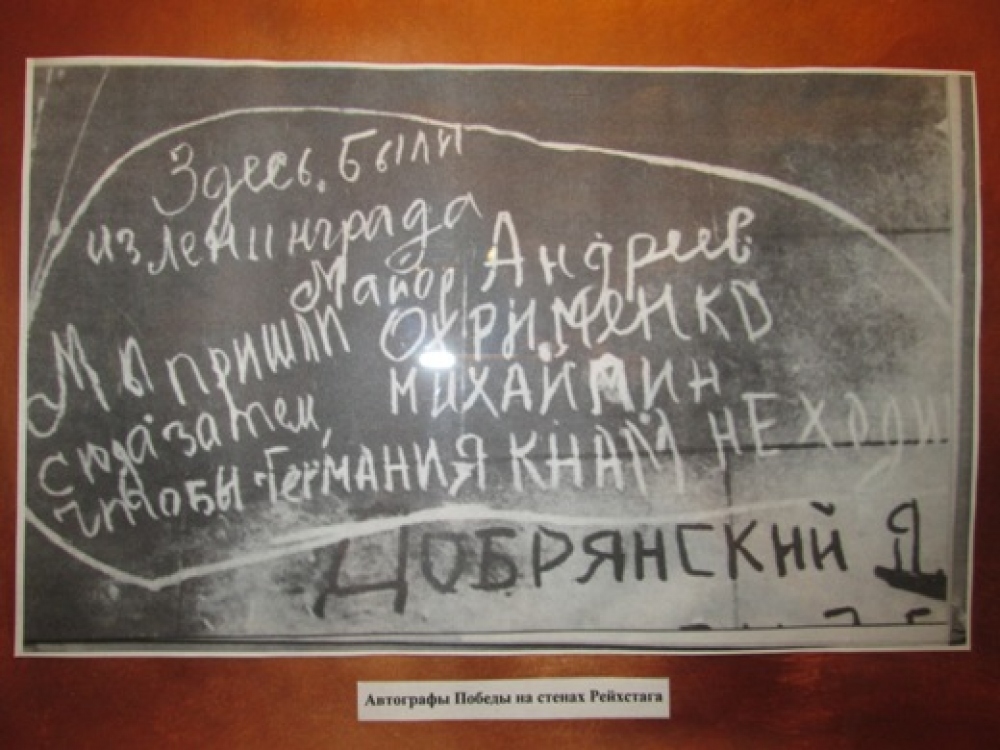 Здесь были
из ленинграда
Майор Андреев
Мы пришли ОХРИМЕНКО
сюда затем, МИХАЙМИН
чтобы ГЕРМАНИЯ К НАМ НЕ ХОДИ
ДОБРЯНСКИЙ Я.
Автографы Победы на стенах Рейхстага